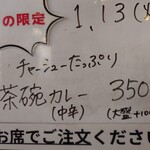 の限定
1,13(
チャーシューたっぷり
茶碗カレー 350
(中辛) (大盛+100
お席でご注文ください